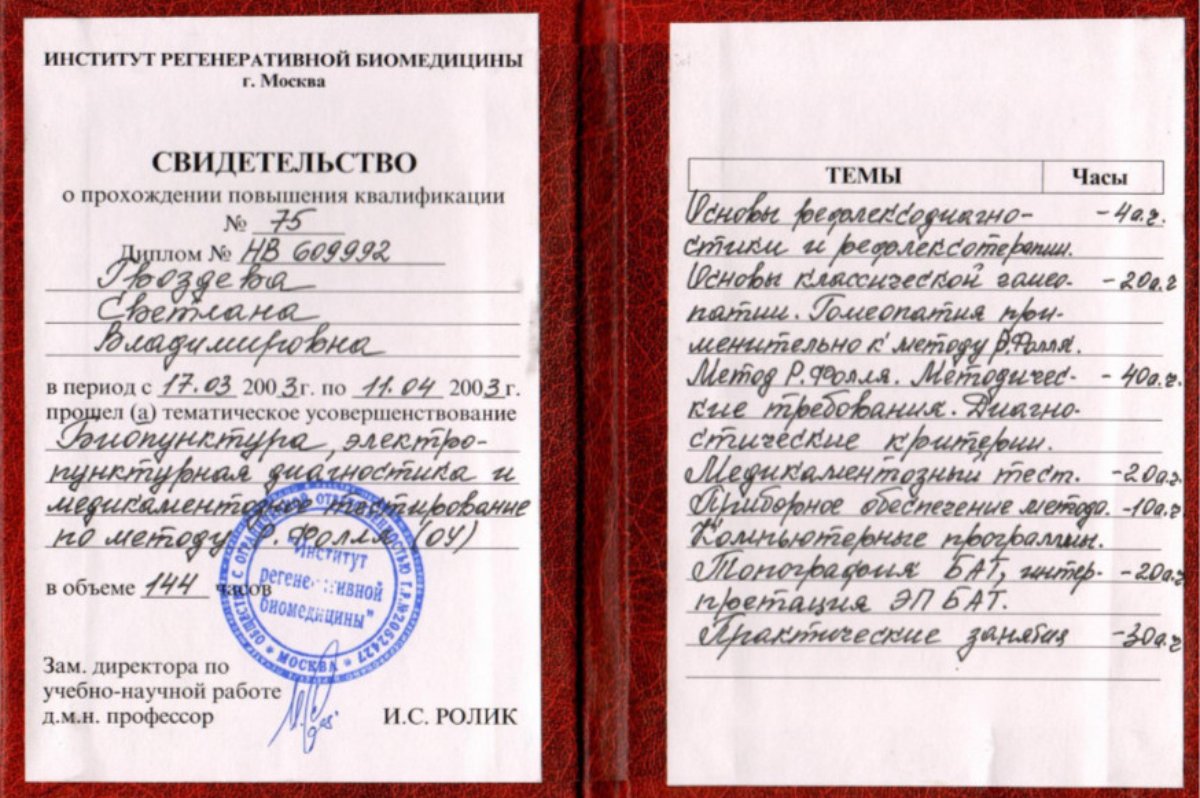 ИНСТИТУТ РЕГЕНЕРАТИВНОЙ БИОМЕДИЦИНЫ
г. Москва
СВИДЕТЕЛЬСТВО
о прохождении повышения квалификации
№ 75
Диплом № НВ 609992
Гвоздева
Светлана
Владимировна
в период с 17.03 2003 г. по 11.04 2003 г.
прошел (а) тематическое усовершенствование
Биопунктура, электро-
пунктурная диагностика и
медикаментозное тестирование
по методу Р. Фолля (ОУ)
в объеме 144 часов
Зам. директора по
учебно-научной работе
д.м.н. профессор И.С. РОЛИК
ОБЩЕСТВО С ОГРАНИЧЕННОЙ ОТВЕТСТВЕННОСТЬЮ Г.Р.№2052427
* МОСКВА *
"Институт
регенеративной
биомедицины"
ТЕМЫ Часы
Основы рефлексодиагно- - 4а.ч.
стики и рефлексотерапии.
Основы классической гомео- - 20а.ч
патии. Гомеопатия при-
менительно к методу Р.Фолля.
Метод Р.Фолля. Методичес- - 40а.ч.
кие требования. Диагно-
стические критерии.
Медикаментозный тест. -20а.ч.
Приборное обеспечение метода. -10а.ч
Компьютерные программы.
Топография БАТ, интер- - 20а.ч.
претация ЭП БАТ.
Практические занятия -30а.ч